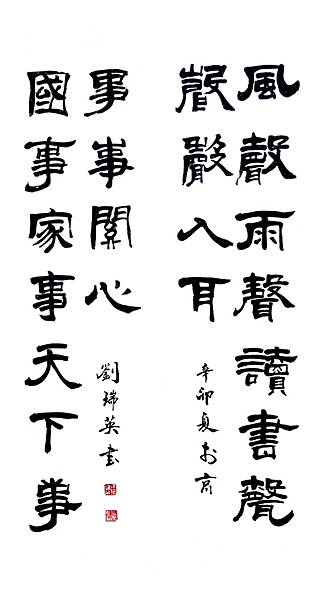 風聲雨聲讀書聲
聲聲入耳
辛卯夏於商
國事家事天下事
事事關心
劉瑞英書